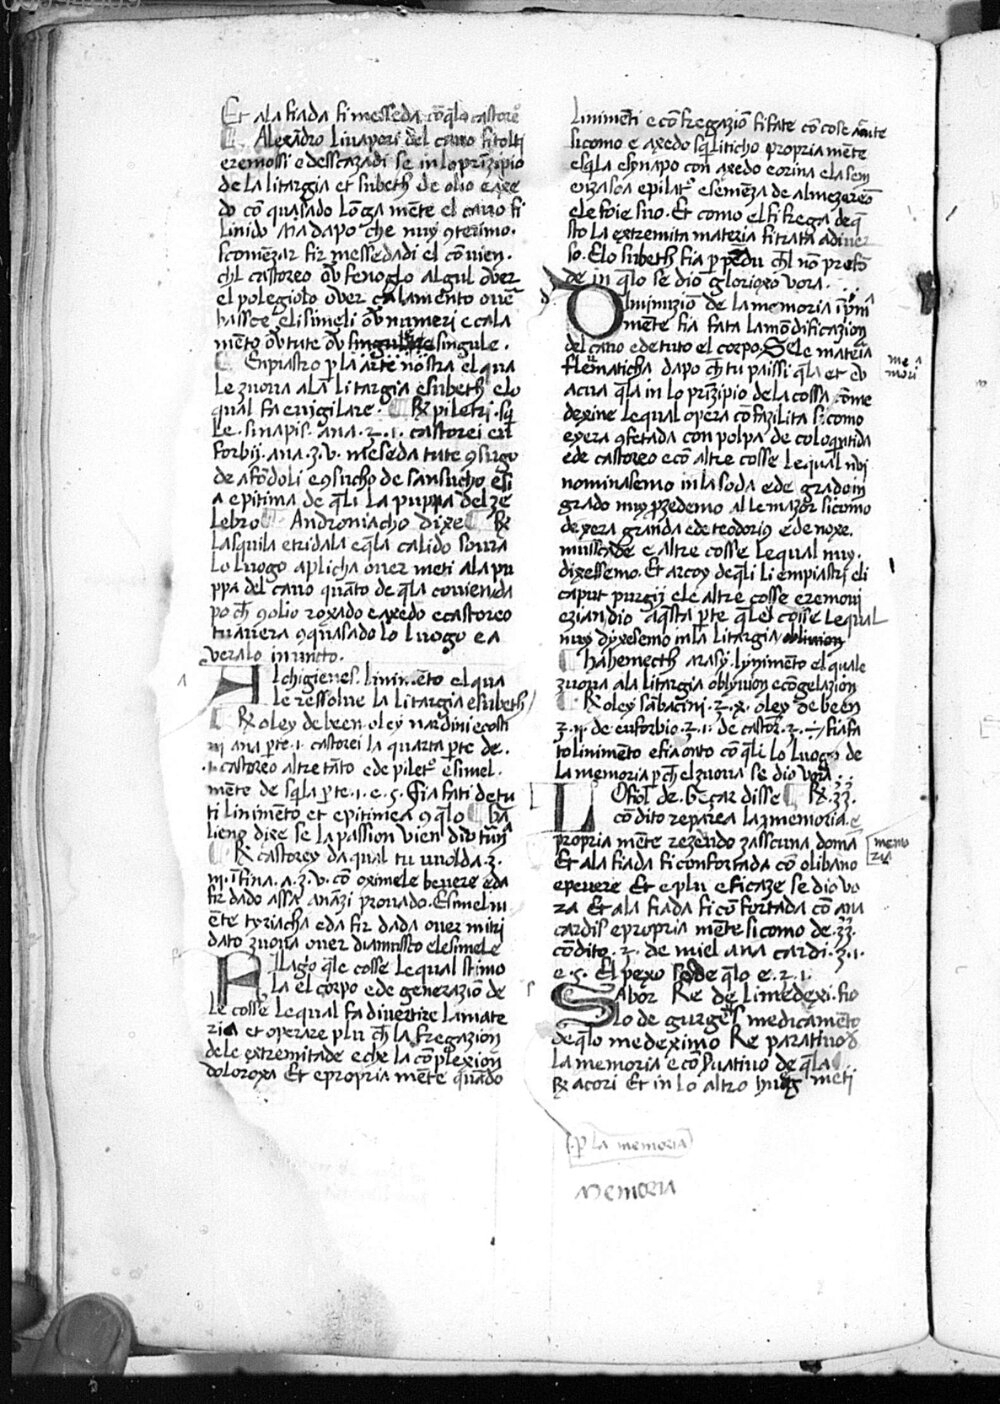 Et ala fiada fi messeda cō q̄lo castore°
¶ Alexādro li vapori del cavo fi tolti
e remossi e descazadi se in lo prīzipio
de la litargia et subeth de olio e axe
do cō quasado lōga mente el cavo fi
linido Ma dapo che nuy ꝯteremo
scomēzar fir messedadi el cōvien.
ch̄l castoreo ov̄ fenoglo al qul over
el polegiolo over calamento ovē
hassce e li simeli ov̄ numeri e cala
mēto ov̄ tute ov̄ singule.
¶ Enpiastro p̱ la arte nostra el qua
le zuova ala litargia e subeth e lo
qual fa evigilare. ¶ ℞ piletri. sq̄
le. sinapis. ana. ʒ. 1. castorei eu
forbij. ana. ʒ. v. meseda tute ꝯ sugo
de afōdoli e ꝯ sucho de sansucho e fi
a epitima de q̄li la puppa del ze
lebro ¶ Andromacho dixe ¶ ℞
la squila e tridala e q̄la calido soura
lo luogo aplicha over meti ala pu
ppa del cavo quāto de q̄la covienda
po ch̄ ꝯ olio roxado e axedo e castoreo
tu avera ꝯquasado lo luogo e a
veralo inuncto.
Alchigienes. linimēto el qua
le ressolve la litargia e subeth
¶ ℞ oley de been. oley nardini e costi
m̄ ana p̱te. 1. castorei la quarta p̱te de.
.1. castoreo altre tāto e de piletr° e simel.
mēte de sq̄la p̱te. 1. e. s. Fia fati de tu
ti linimēto et epitimica ꝯ q̄lo ¶ hā
lieno dixe se la passion vien diutūa
¶ ℞ castorey da qual tu uuolda. ʒ.
iij. ī fina. a. ʒ. v. cō oximele bevere e da
fir dado assa avāzi provado. E simel m
ēte tyriacha e da fir dada over mitri
dato zuova over diamusco e le simele
Pilago q̄le cosse le qual stimo
la el corpo e de generaziō de
le cosse le qual fa divertire la mate
ria et operare plu ch̄ la fregaziōn
de le extremitade e che la cōplexion
doloroxa Et e propria mēte quādo
linimēti e cō fregaziō fi fate cō cose
si como e axedo sq̄liticho propria mēte
e sq̄la e synapo con axedo e orina e la sem
enza soa e pilatr° e semēza de almezereō
e le foie suo. Et como el fi frega de q̄
sto la extremita materia fi trata a diver
so. E lo subeth fia p̱pēdu ch̄l nō profō
de in q̄lo se dio glorioxo vora.
Obluviziō de la memoria ī p̱m̄
mēte fia fata la mōdificaziōn
del cavo e de tuto el corpo. Se le materia
flematicha dapo ch̄ tu païssi q̄la et ev
acua q̄la in lo prīzipio de la cossa cō me
dexine le qual opera cō fazilita si como
e yera ꝯfetada con polpa de coloqntida
e de castoreo e cō altre cosse le qual nui
nominasemo in la soda e de grado in
grado nuy p̱zedemo al le mazor si como
de yera granda e de teodorico e de noxe
muscade e altre cosse le qual nuy.
dixessemo. Et arcoy de q̄li li empiastri e li
caput purgij e le altre cosse e removi
eziandio aq̄sta p̱te q̄le cosse le qual
nuy dyxesemo in la litargia oblivion
¶ hahemecth arasy. lynimēto el quale
zuova ala litargia oblivion e cōgelaziōn
¶ ℞ oley sabacini. ʒ. x. oley de been
ʒ. ij. de euforbio. ʒ. 1. de castor. ʒ. ÷ fia fa
to linimēto e fia onto cō q̄li lo luogo de
la memoria p̱ch̄ el zuova se dio vora. :
Lo fiol de bencar disse ¶ ℞. ʒʒ.
cōdito repara la memoria. e
propria mēte rezendo zasscuna domā
Et ala fiada fi confortada cō olibano
e pevere Et e plu eficaze se dio vo
ra Et ala fiada fi cōfortada cō ana
cardis e propria mēte si como de. ʒʒ.
cōdito. ʒ. de miel anacardi. ʒ. 1.
e. s. El pexo so de q̄lo e. ʒ. 1.
Sabor Re de li medexi. fio
lo de gurges medicamēto
de q̄lo medeximo Re parativo d̄
la memoria e cōs̱vativo de q̄la ¶
℞ acori Et in lo altro luog meti
me
mori
memo
ria
p̱ la memoria
Memoria